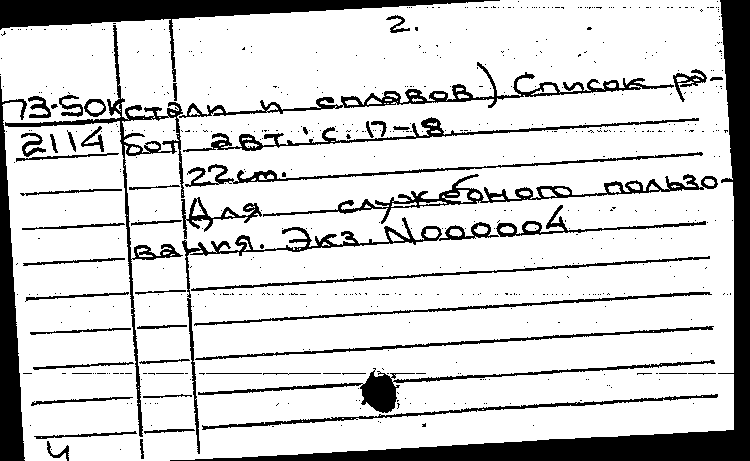 2.
73-50к стали и сплавов) Список ра-
2114 бот авт.: с. 17-18.
22см.
Для служебного пользо-
вания. Экз. N000004
ч